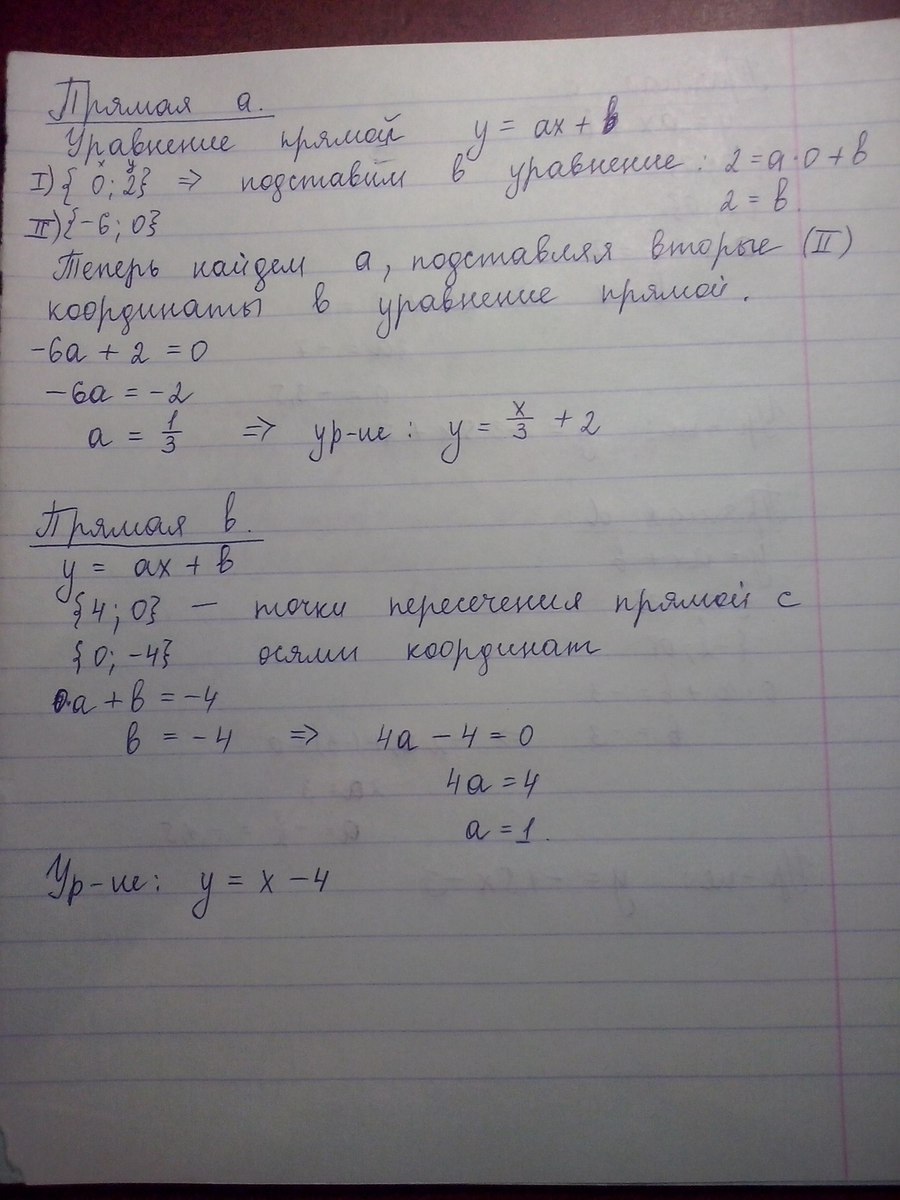 Прямая а.
Уравнение прямой y = ax + b
x y
I) { 0; 2} => подставим в уравнение: 2 = a·0 + b
II) {-6; 0} 2 = b.
Теперь найдем а, подставляя вторые (II)
координаты в уравнение прямой.
-6a + 2 = 0
-6a = -2
a = 1/3 => ур-ие: y = x/3 + 2
Прямая в.
y = ax + b
{4; 0} — точки пересечения прямой с
{0; -4} осями координат
0·a + b = -4
b = -4 => 4a - 4 = 0
4a = 4
a = 1.
Ур-ие: y = x - 4